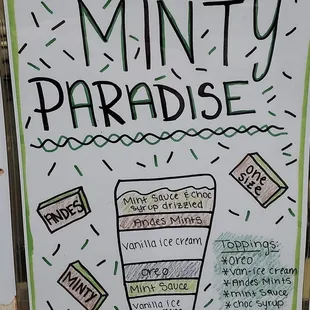 MINTY
PARADISE
ONE
SIZE
ANDES
MINTY
Mint Sauce & Choc
syrup drizzled
Andes Mints
Vanilla ice cream
Oreo
Mint Sauce
Vanilla Ice
Toppings:
*Oreo
*Van-Ice cream
*Andes Mints
*mint Sauce
*choc syrup